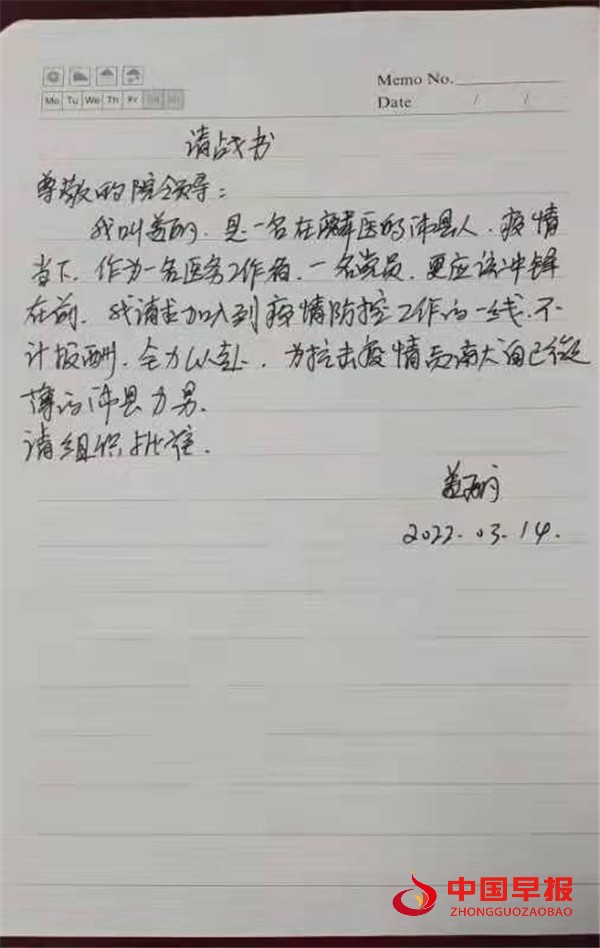 Memo No.
Mo Tu We Th Fr Sa Su
Date / /
请战书
尊敬的院领导:
我叫姜丽,是一名在医的沛县人,疫情
当下,作为一名医务工作者,一名党员,更应该冲锋
在前,我请求加入到疫情防控工作的一线,不
计报酬,全力以赴,为抗击疫情贡献自己
薄的沛县力量.
请组织批准.
2022.03.14.
中国早报
ZHONGGUOZAOBAO